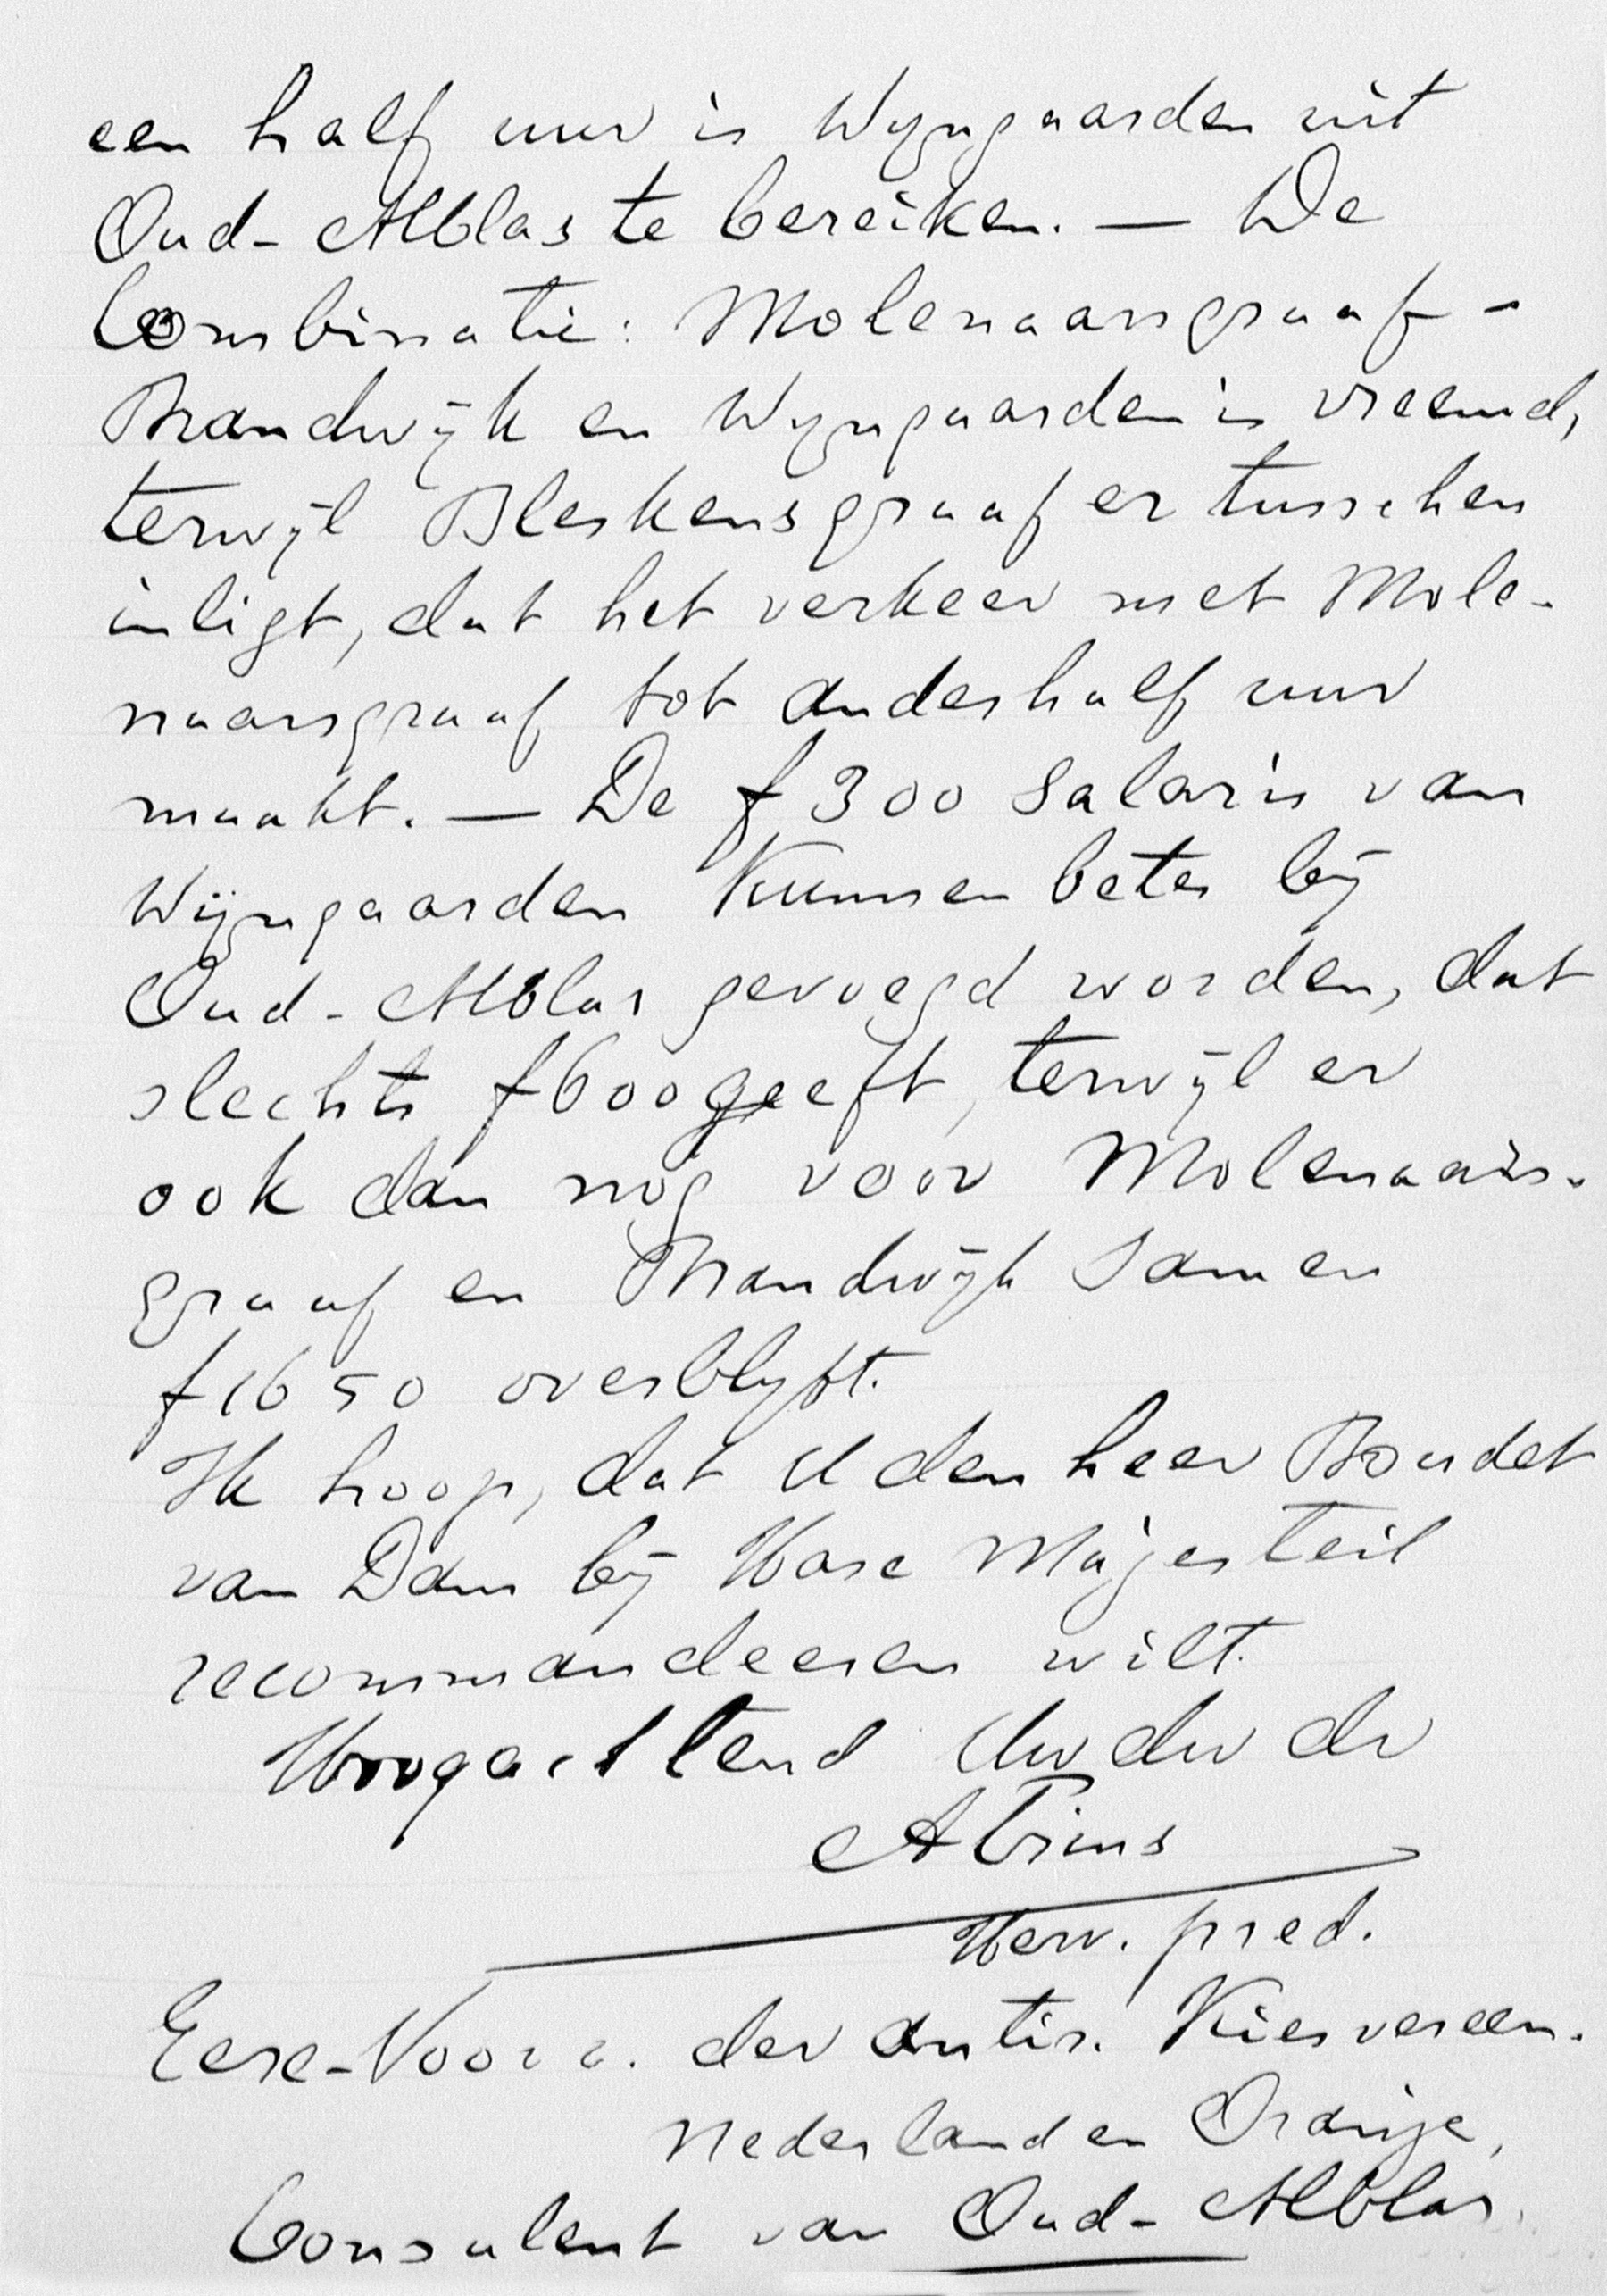 een half uur is Wyngaarden uit
Oud-Alblas te bereiken. — De
Combinatie: Molenaarsgraaf -
Brandwijk en Wyngaarden is vreemd,
terwijl Bleskensgraaf er tusschen
inligt, dat het verkeer met Mole-
naarsgraaf tot anderhalf uur
maakt. — De f 300 Salaris van
Wijngaarden kunnen beter bij
Oud-Alblas gevoegd worden, dat
slechts f 600 geeft, terwijl er
ook dan nog voor Molenaars-
graaf en Brandwijk samen
f 1650 overblyft.
Ik hoop, dat U den heer Boudet
van Dam bij Hare Majesteit
recommandeeren wilt.
Hoogachtend Uw dw dr
Herv. pred.
Eere-Voorz. der antir. Kiesvereen.
Nederland en Oranje,
Consulent van Oud-Alblas.